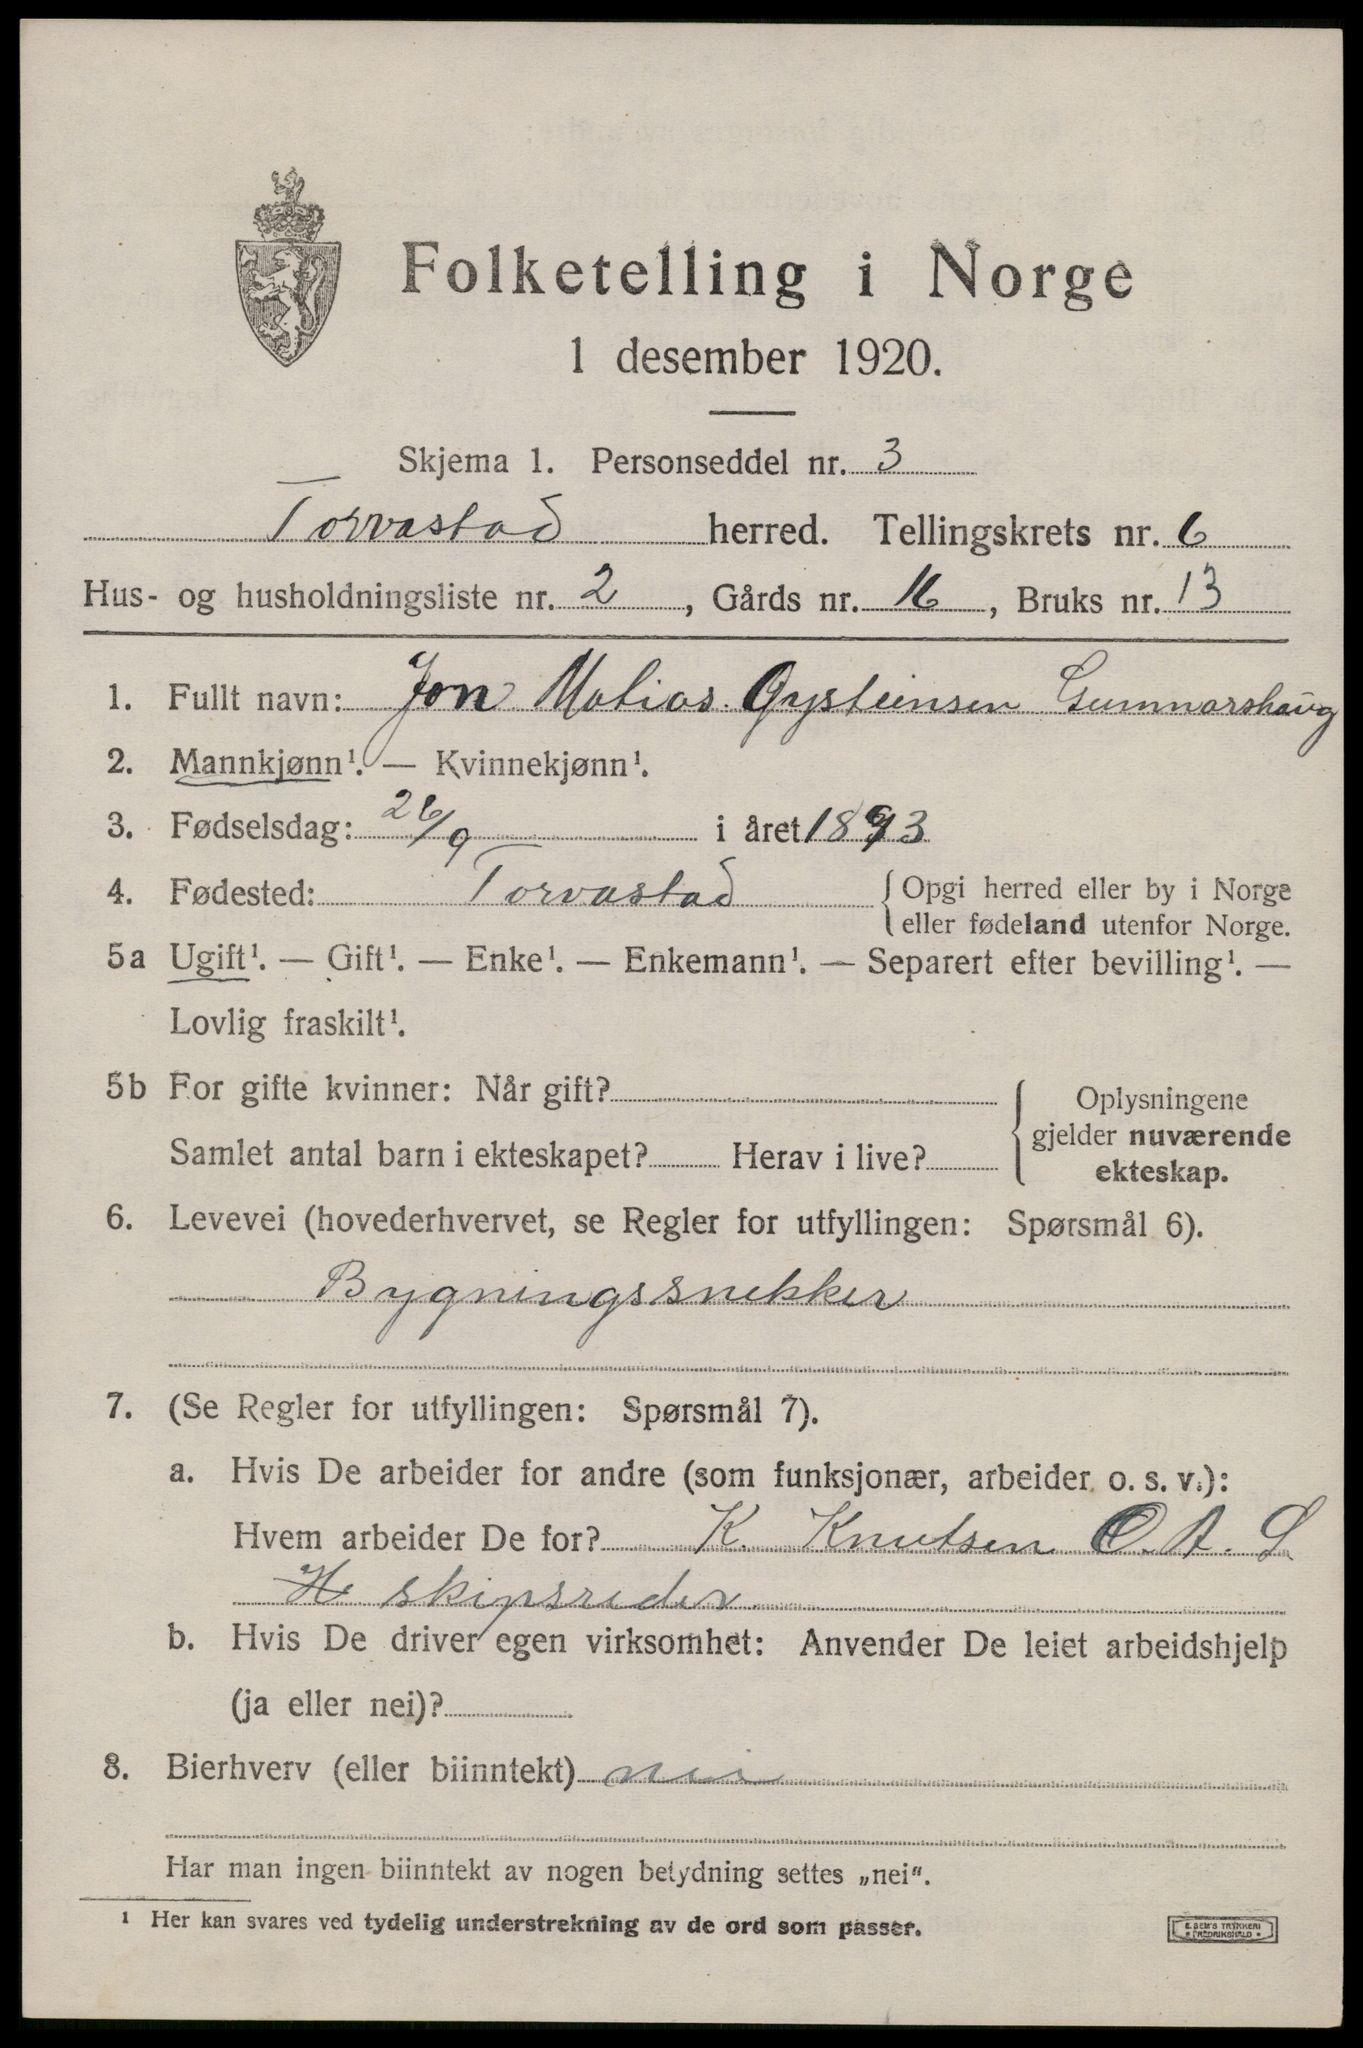 Folketelling i Norge
1 desember 1920.
Skjema 1. Personseddel nr. 3
Torvastad herred. Tellingskrets nr. 6
Hus- og husholdningsliste nr. 2, Gårds nr. 16, Bruks nr. 13
1. Fullt navn: Jon Matias Øysteinsen Gunnarshaug
2. Mannkjønn¹. — Kvinnekjønn¹.
3. Fødselsdag: 26/9 i året 1893
4. Fødested: Torvastad {Opgi herred eller by i Norge
eller fødeland utenfor Norge.
5a Ugift¹. — Gift¹. — Enke¹. — Enkemann¹. — Separert efter bevilling¹. —
Lovlig fraskilt¹.
5b For gifte kvinner: Når gift?
Samlet antal barn i ekteskapet? Herav i live?
Oplysningene
gjelder nuværende
ekteskap.
6. Levevei (hovederhvervet, se Regler for utfyllingen: Spørsmål 6).
Bygningssnekker
7. (Se Regler for utfyllingen: Spørsmål 7).
a. Hvis De arbeider for andre (som funksjonær, arbeider o. s. v.):
Hvem arbeider De for? K. Knutsen O. A. S
skipsreder
b. Hvis De driver egen virksomhet: Anvender De leiet arbeidshjelp
(ja eller nei)?
8. Bierhverv (eller biinntekt) nei
Har man ingen biinntekt av nogen betydning settes „nei“.
¹ Her kan svares ved tydelig understrekning av de ord som passer.
E. SEM'S TRYKKERI
* FREDRIKSHALD *